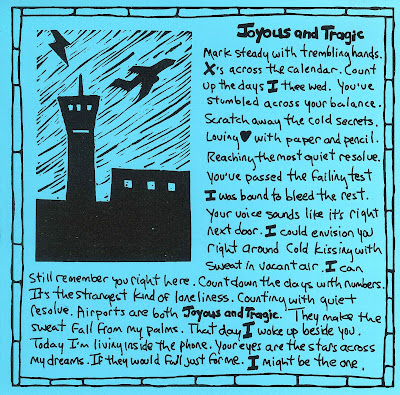 Joyous and Tragic
Mark steady with trembling hands.
X's across the calendar. Count
up the days I thee wed. You've
stumbled across your balance.
Scratch away the cold secrets.
Loving ♥ with paper and pencil.
Reaching the most quiet resolve.
You've passed the failing test
I was bound to bleed the rest.
Your voice sounds like it's right
next door. I could envision you
right around cold kissing with
sweat in vacant air. I can
still remember you right here. Count down the days with numbers.
It's the strangest kind of loneliness. Counting with quiet
resolve. Airports are both Joyous and Tragic. They make the
sweat fall from my palms. That day I woke up beside you.
Today I'm living inside the phone. Your eyes are the stars across
my dreams. If they would fall just for me. I might be the one.